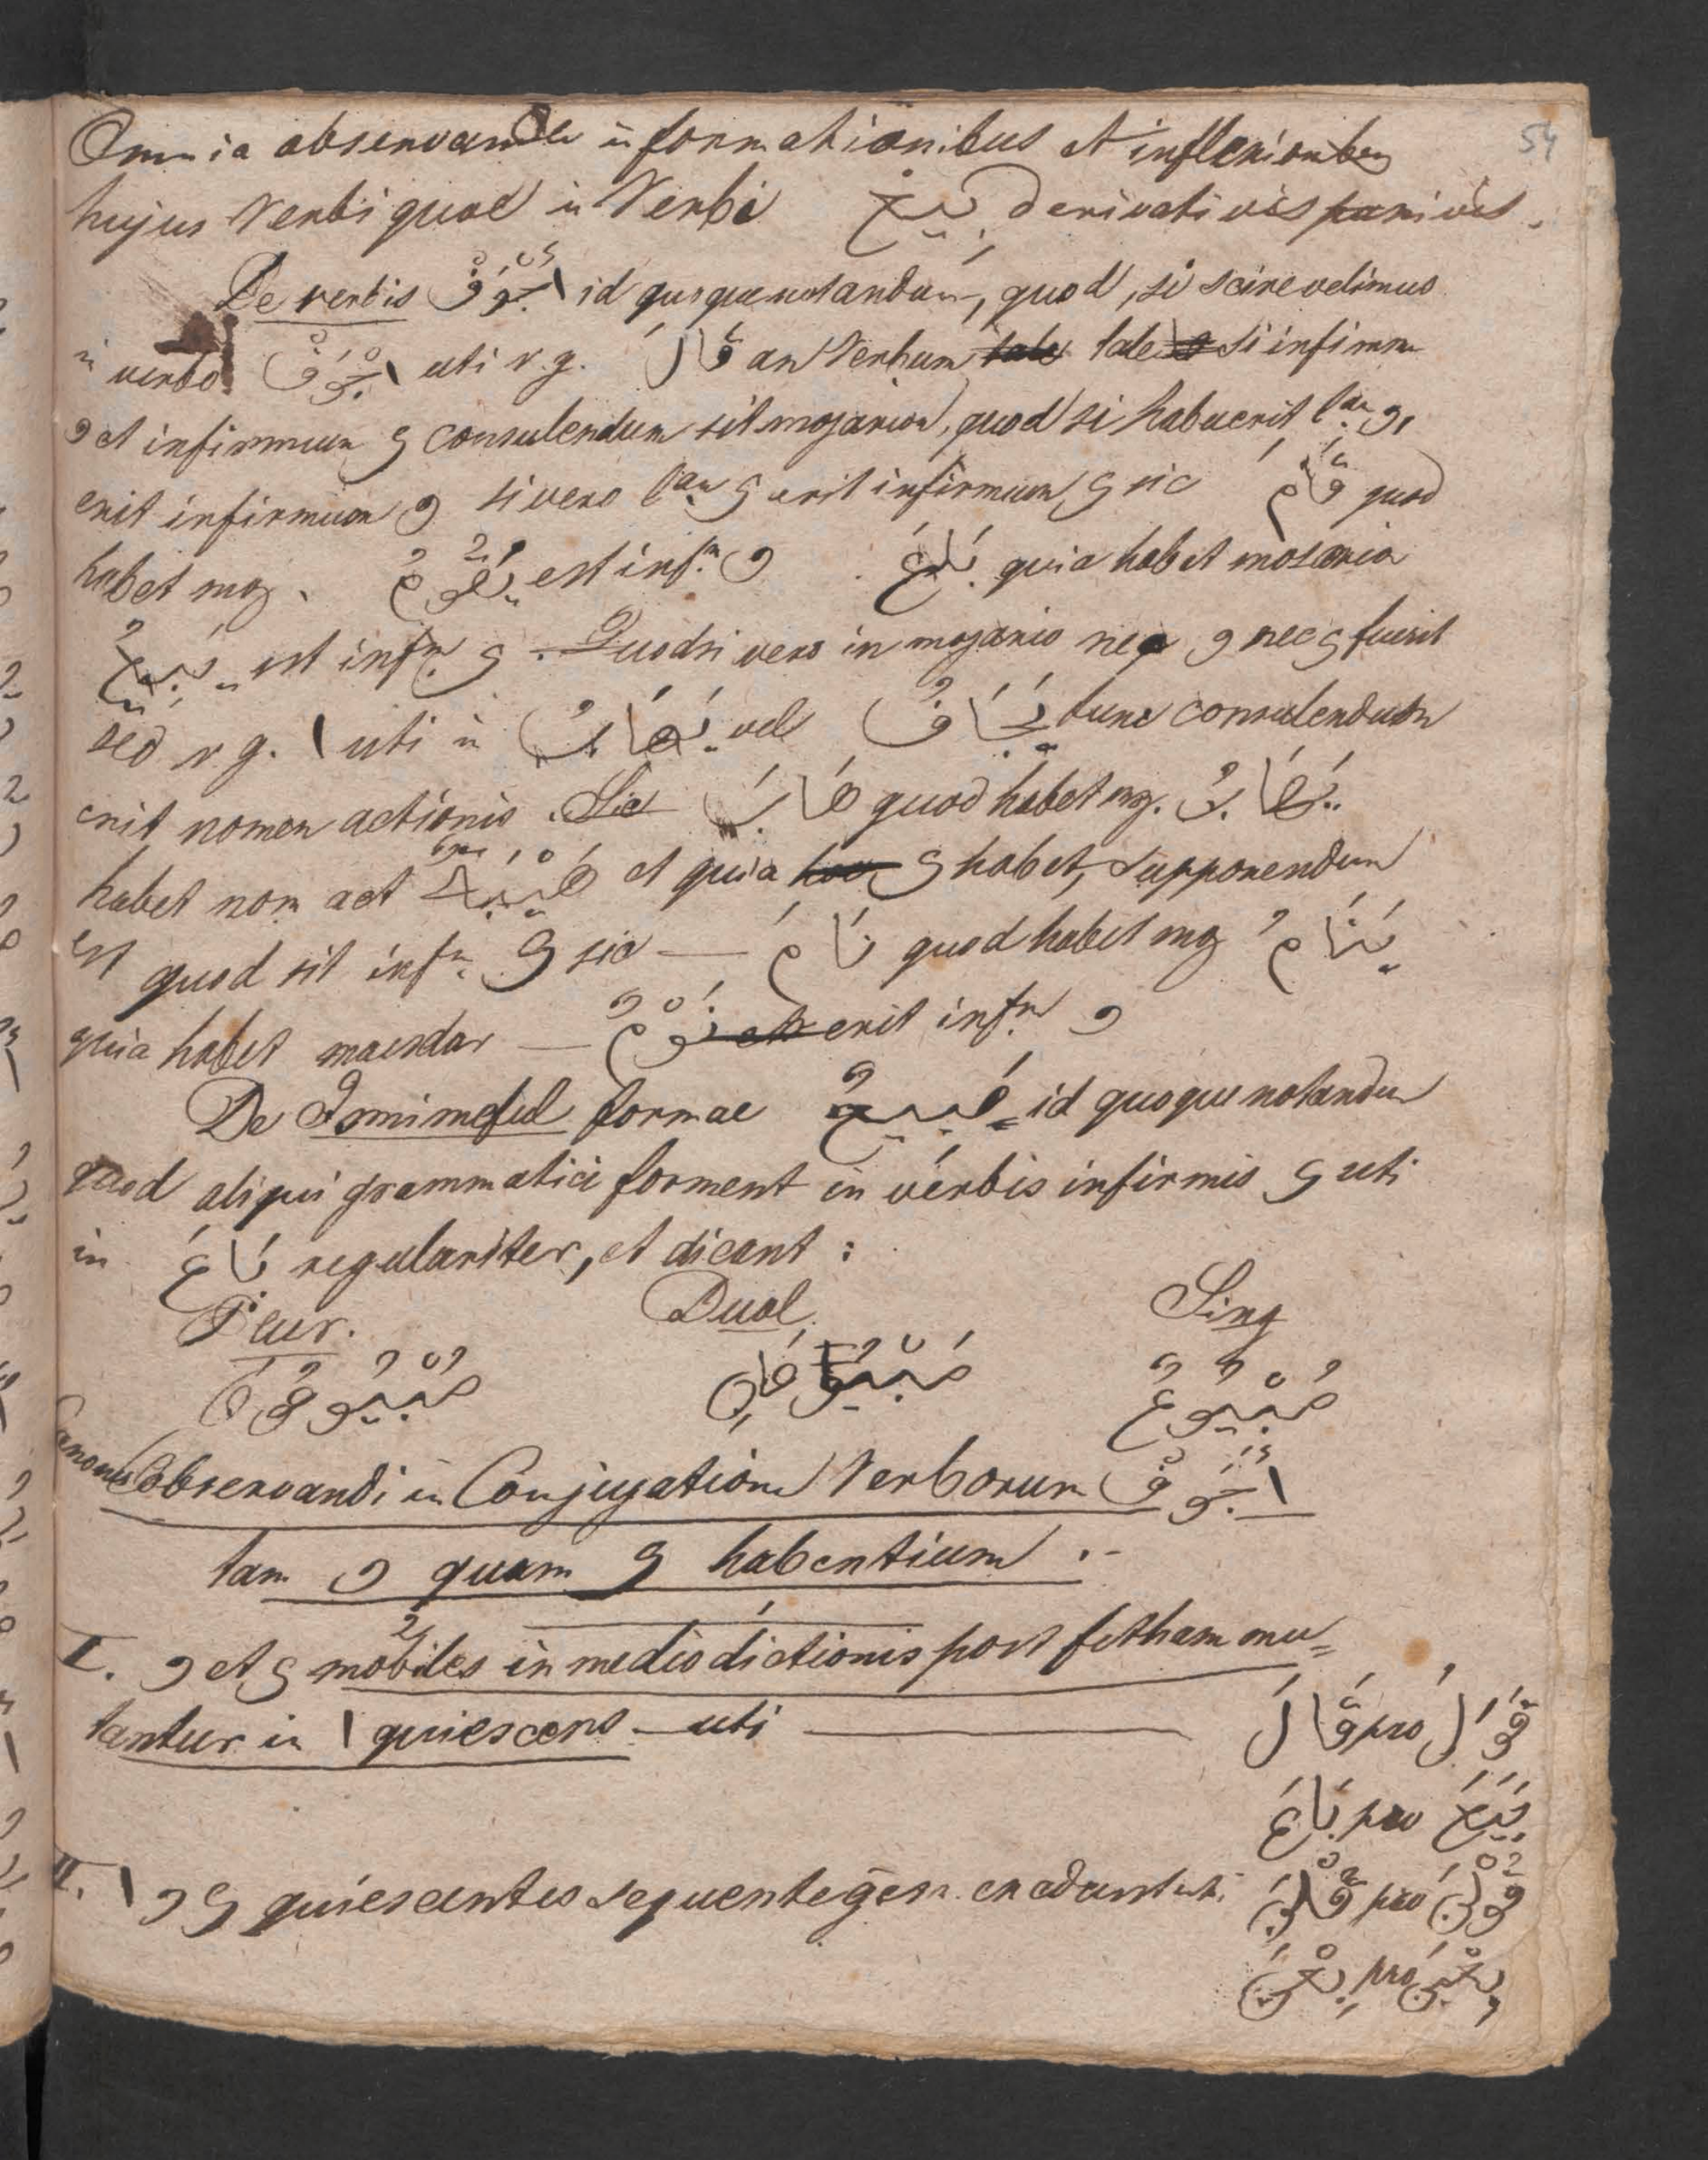 54
Omnia observanda in formationibus et inflexionibus
hujus Verbi quae in Verbi بيع derivativis
De verbis اجوف id quoque notandum, quod, si scire velimus
in verbo اجوف uti v. g. قَالَ an Verbum tale tale si infirmum
و et infirmum ي consulendum sit mozarion, quod si habuerit و
erit infirmum و si vero ي erit infirmum ي sic قَامَ quod
habet moz. يَقُومُ est infm. و بَاعَ quia habet mozaria
يَبِيعُ est infm. ي. Quodsi vero in mozario neq و nec ي fuerit
sed v. g. ا uti in vel يَخَافُ tunc consulendum
erit nomen actionis. Sic quod habet moz.
habet nom act et quia ي habet, supponendum
est quod sit infm. ي sic — نَامَ quod habet moz يَنَامُ
quia habet masdar — نَوْمٌ erit infm. و
De Ismimeful formae مَبِيعٌ id quoque notandum
quod aliqui grammatici forment in verbis infirmis ي uti
in بَاعَ regulariter, et dicant :
Plur. Dual Sing
مَبْيُوعُونَ مَبْيُوعَانِ مَبْيُوعٌ
Canones observandi in Conjugatione Verborum اجوف
tam و quam ي habentium .-
I. و et ي mobiles in medio dictionis post fetham mu=
tantur in ا quiescens — uti — قَالَ pro قَوَلَ
بَاعَ pro بَيَعَ
II. ا و ي quiescentes sequente gesm. excadunt uti قُلْنَ pro قُوْلْنَ
بِعْنَ pro بِيْعْنَ